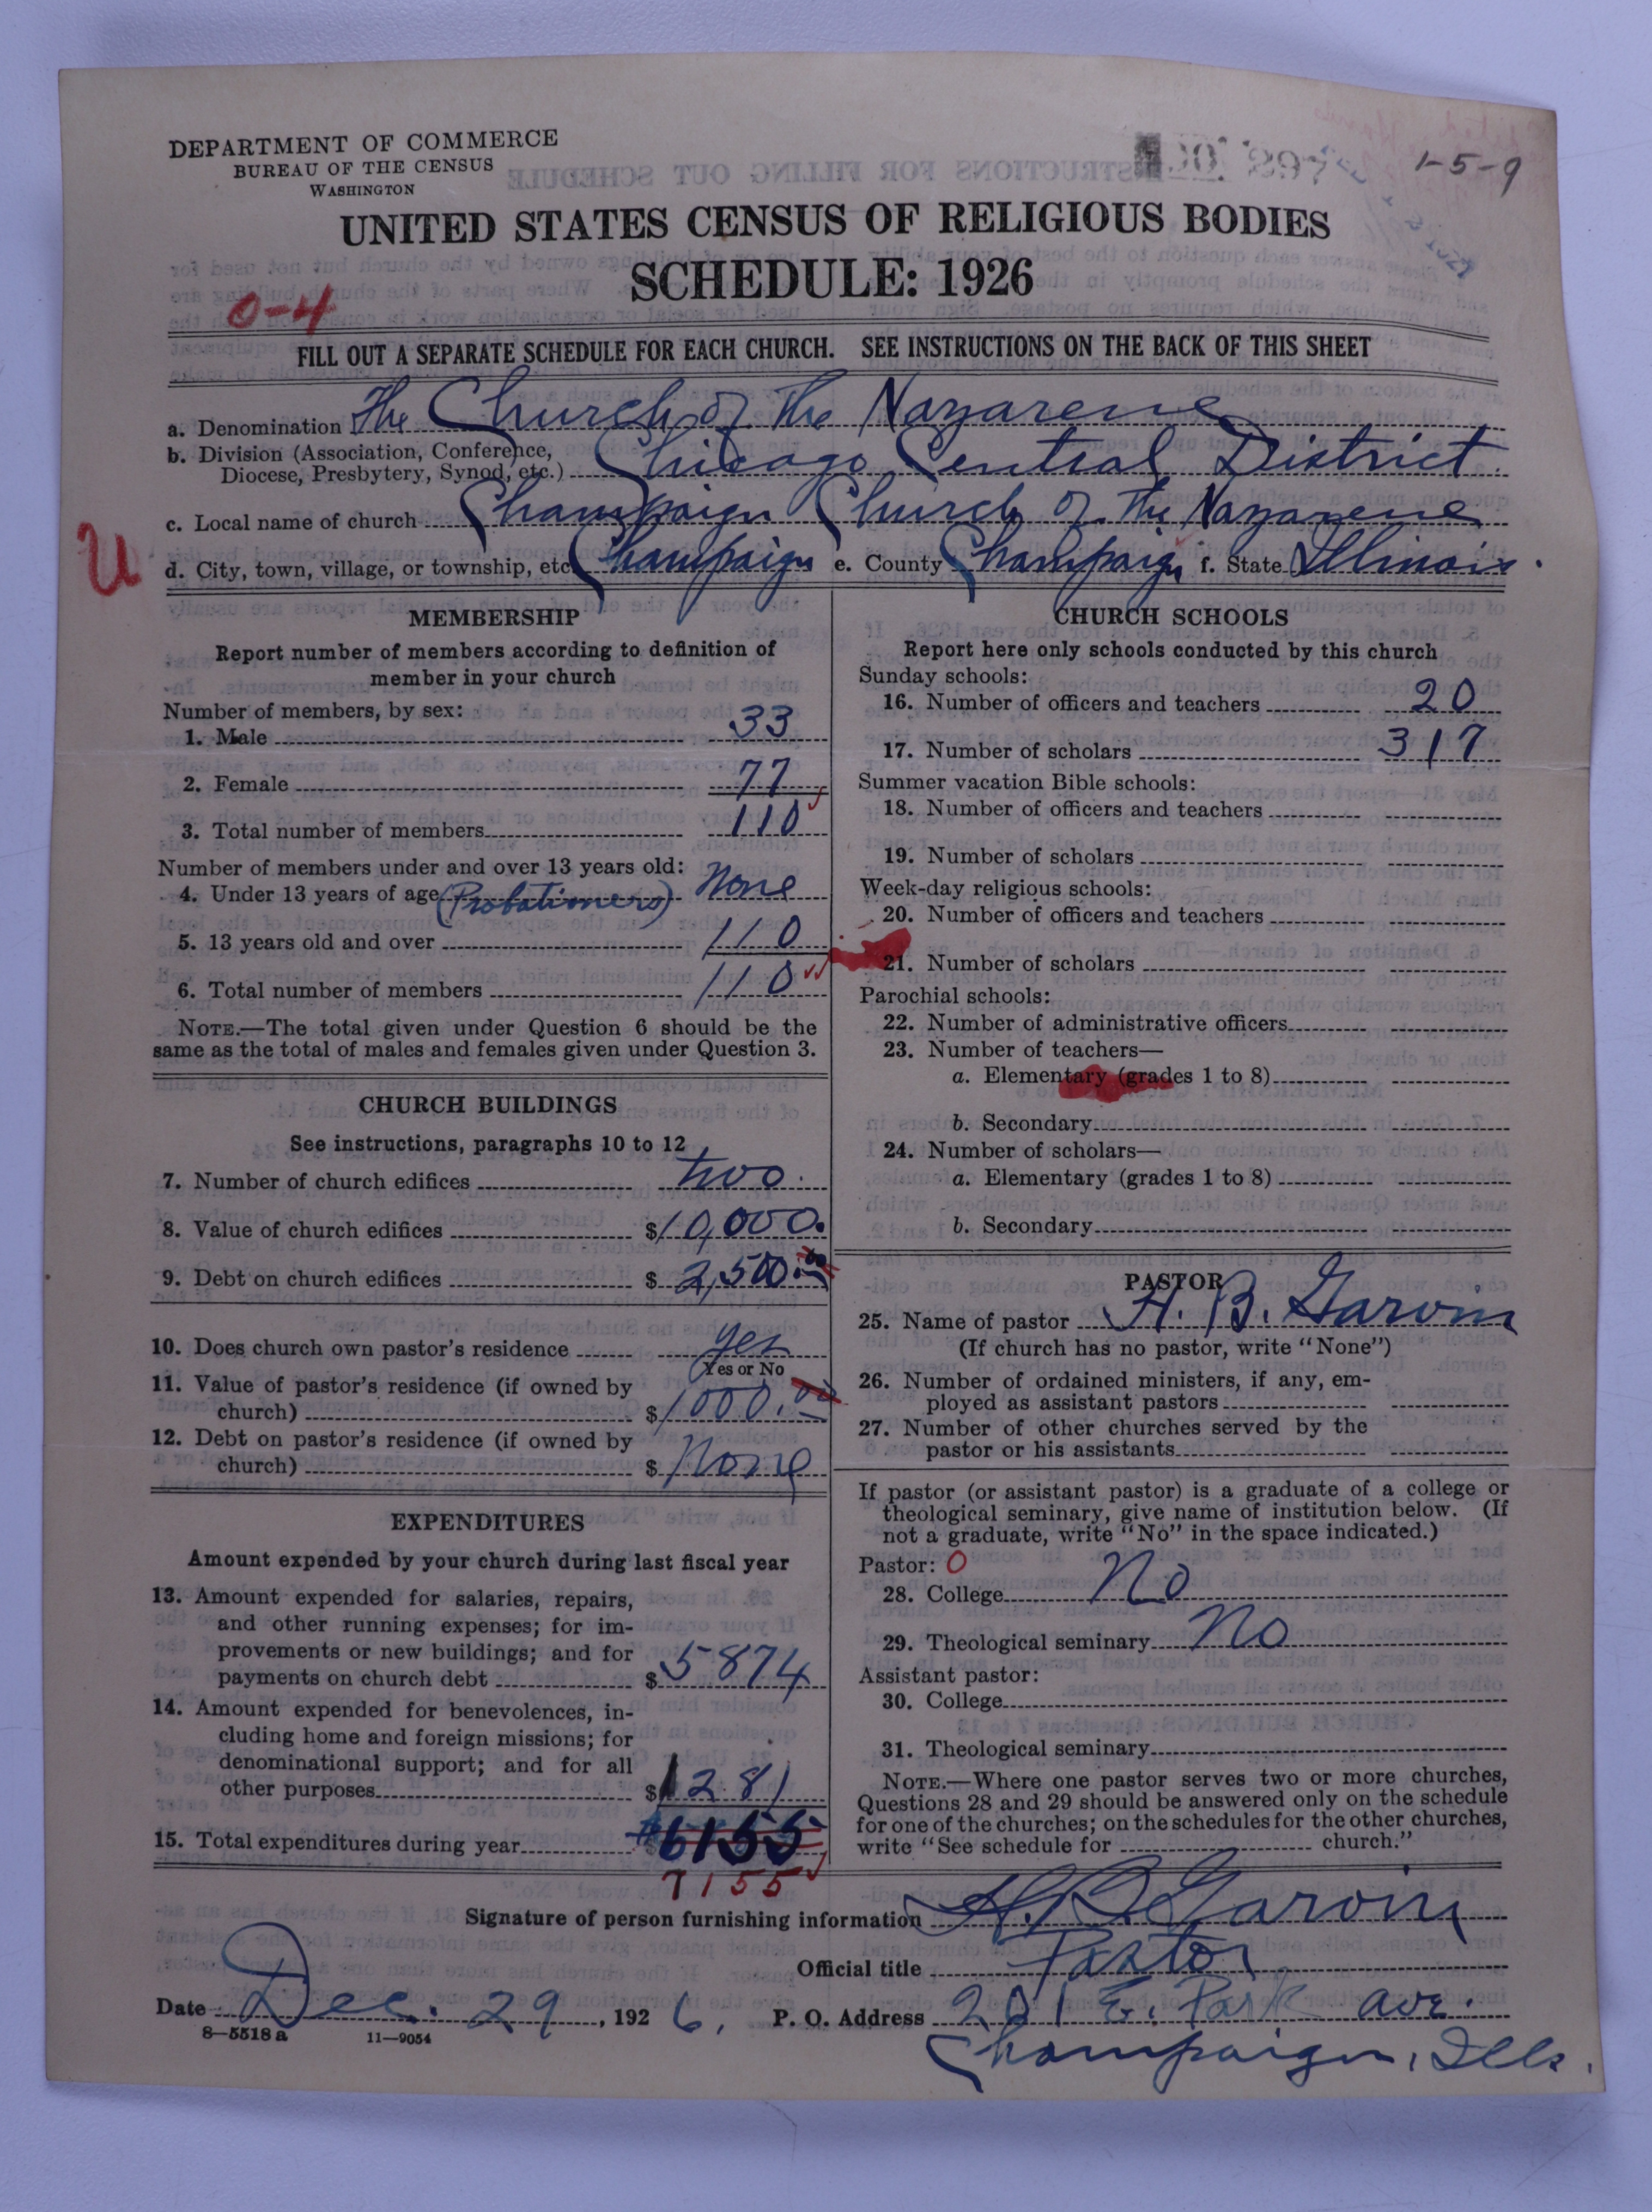 DEPARTMENT OF COMMERCE
BUREAU OF THE CENSUS
WASHINGTON
1-5-9
UNITED STATES CENSUS OF RELIGIOUS BODIES
SCHEDULE: 1926
0-4
FILL OUT A SEPARATE SCHEDULE FOR EACH CHURCH. SEE INSTRUCTIONS ON THE BACK OF THIS SHEET
a. Denomination The Church of the Nazarene
b. Division (Association, Conference, Diocese, Presbytery, Synod, etc.) Chicago Central District
c. Local name of church Champaign Church of the Nazarene
U
d. City, town, village, or township, etc. Champaign e. County Champaign f. State Illinois.
MEMBERSHIP
Report number of members according to definition of
member in your church
Number of members, by sex:
1. Male 33
2. Female 77
3. Total number of members 110
Number of members under and over 13 years old:
4. Under 13 years of age (Probationers) None
5. 13 years old and over 110
6. Total number of members 110
NOTE.—The total given under Question 6 should be the
same as the total of males and females given under Question 3.
CHURCH BUILDINGS
See instructions, paragraphs 10 to 12
7. Number of church edifices two.
8. Value of church edifices $10,000.
9. Debt on church edifices $2,500.00
10. Does church own pastor's residence yes
Yes or No
11. Value of pastor's residence (if owned by
church) $1000.00
12. Debt on pastor's residence (if owned by
church) $None
EXPENDITURES
Amount expended by your church during last fiscal year
13. Amount expended for salaries, repairs,
and other running expenses; for im-
provements or new buildings; and for
payments on church debt $5874
14. Amount expended for benevolences, in-
cluding home and foreign missions; for
denominational support; and for all
other purposes $1281
15. Total expenditures during year $6155
7155
CHURCH SCHOOLS
Report here only schools conducted by this church
Sunday schools:
16. Number of officers and teachers 20
17. Number of scholars 317
Summer vacation Bible schools:
18. Number of officers and teachers
19. Number of scholars
Week-day religious schools:
20. Number of officers and teachers
21. Number of scholars
Parochial schools:
22. Number of administrative officers
23. Number of teachers—
a. Elementary (grades 1 to 8)
b. Secondary
24. Number of scholars—
a. Elementary (grades 1 to 8)
b. Secondary
PASTOR
25. Name of pastor H. B. Garvin
(If church has no pastor, write "None")
26. Number of ordained ministers, if any, em-
ployed as assistant pastors
27. Number of other churches served by the
pastor or his assistants
If pastor (or assistant pastor) is a graduate of a college or
theological seminary, give name of institution below. (If
not a graduate, write "No" in the space indicated.)
Pastor: 0
28. College No
29. Theological seminary No
Assistant pastor:
30. College
31. Theological seminary
NOTE.—Where one pastor serves two or more churches,
Questions 28 and 29 should be answered only on the schedule
for one of the churches; on the schedules for the other churches,
write "See schedule for church."
Signature of person furnishing information H. B. Garvin
Official title Pastor
Date Dec. 29, 1926, P. O. Address 201 E. Park ave.
8-5518a 11-9054
Champaign, Ills.